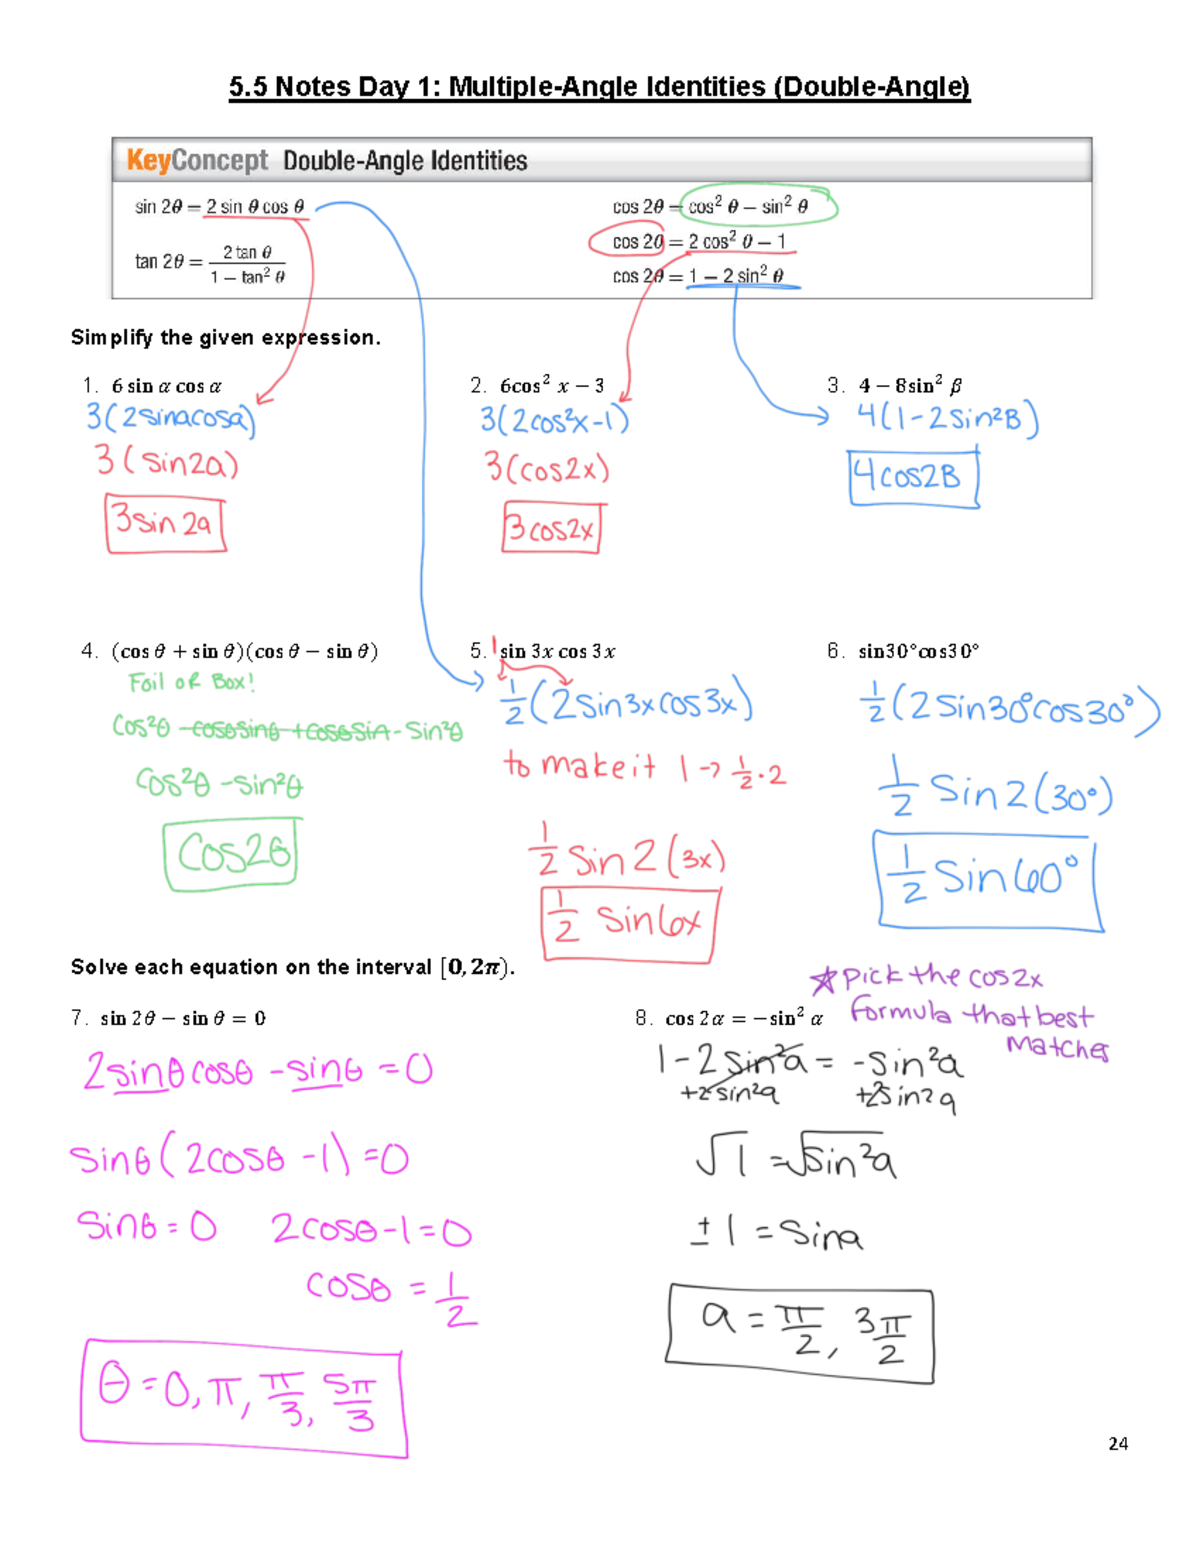 5.5 Notes Day 1: Multiple-Angle Identities (Double-Angle)
KeyConcept Double-Angle Identities
sin 2θ = 2 sin θ cos θ
cos 2θ = cos² θ − sin² θ
tan 2θ = 2 tan θ / 1 − tan² θ
cos 2θ = 2 cos² θ − 1
cos 2θ = 1 − 2 sin² θ
Simplify the given expression.
1. 6 sin α cos α
3(2sinacosa)
3(sin2a)
3sin2a
2. 6cos² x − 3
3(2cos²x-1)
3(cos2x)
3cos2x
3. 4 − 8sin² β
4(1-2sin²B)
4cos2B
4. (cos θ + sin θ)(cos θ − sin θ)
Foil or Box!
cos²θ -cosθsinθ +cosθsin-sin²θ
cos²θ -sin²θ
cos2θ
5. 1 sin 3x cos 3x
1/2(2sin3xcos3x)
to make it 1→ 1/2·2
1/2 sin2(3x)
1/2 sin6x
6. sin30°cos30°
1/2(2sin30°cos30°)
1/2 sin2(30°)
1/2 sin60°
Solve each equation on the interval [0, 2π).
7. sin 2θ − sin θ = 0
2sinθcosθ -sinθ =0
sinθ(2cosθ -1)=0
sinθ=0 2cosθ-1=0
cosθ = 1/2
θ=0, π, π/3, 5π/3
8. cos 2α = −sin² α
☆pick the cos2x
formula that best
matches
1-2sin²a= -sin²a
+2sin²a +2sin²a
√1 =√sin²a
±1 =sina
a=π/2, 3π/2
24